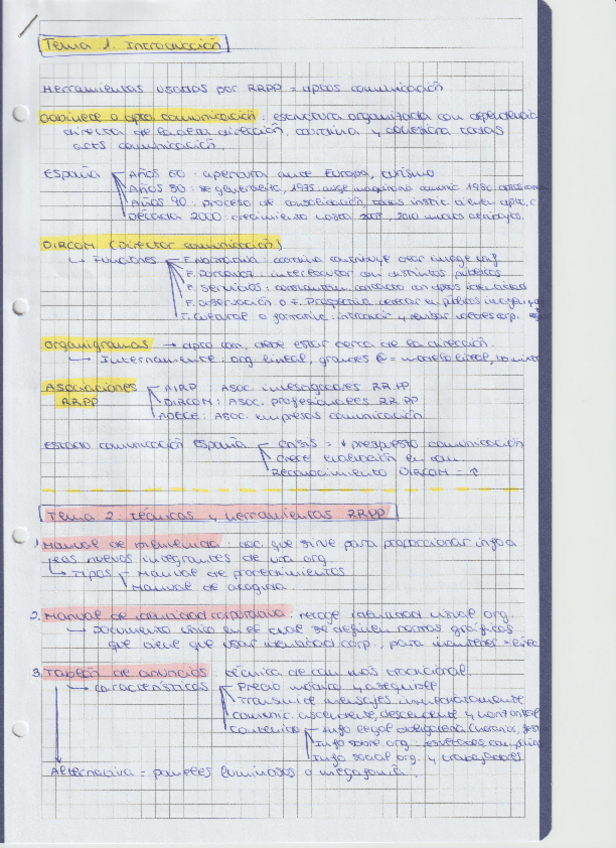 Tema 1. Introducción
Herramientas usadas por RRPP = dptos comunicación
Gabinete o dpto comunicación: estructura organizada con dependencia
director de la alta dirección, coordina y cohesiona todas
acts comunicación.
España Años 60: apertura ante Europa, turismo
Años 80: se generaliza, 1975
Años 90: proceso de consolidación, todas instit. tienen dpto. c
Década 2000: crecimiento hasta 2008, 2010
DIRCOM (Director comunicación)
Funciones F. normativa
F. Portavoz: interlocutor con distintos públicos
F. Servicios: contacto con dptos
F. observación o F. Prospectiva
F. Cultural o formativa: introducir y revisar valores corp.
Organigramas → dpto com. debe estar cerca de la dirección.
Internamente: org. lineal, grandes modelo lineal,
Asociaciones RRPP AIRP: Asoc. investigadores RR.PP
DIRCOM: Asoc. profesionales RR.PP
ADECE: Asoc. empresas comunicación
Estado comunicación España Crisis = ↓ presupuesto comunicación
Crece evaluación en com.
Reconocimiento DIRCOM = ↑
Tema 2. Técnicas y herramientas RRPP
1. Manual de : doc. que sirve para proporcionar info a
los nuevos integrantes de una org.
Tipos Manual de procedimientos
Manual de acogida
2. Manual de identidad corporativa: recoge identidad visual org.
Documento único en el cual se definen normas gráficas
que tiene que usar identidad corp., para mantener
3. Tablón de anuncios: técnica de com. más tradicional.
Características Precio módico y asequible
Transmite mensajes
Comunic. ascendente, descendente y horizontal
Contenido Info legal obligatoria (horarios,
Info sobre org.
Info social org. y trabajadores
Alternativa = paneles luminosos o megafonía.